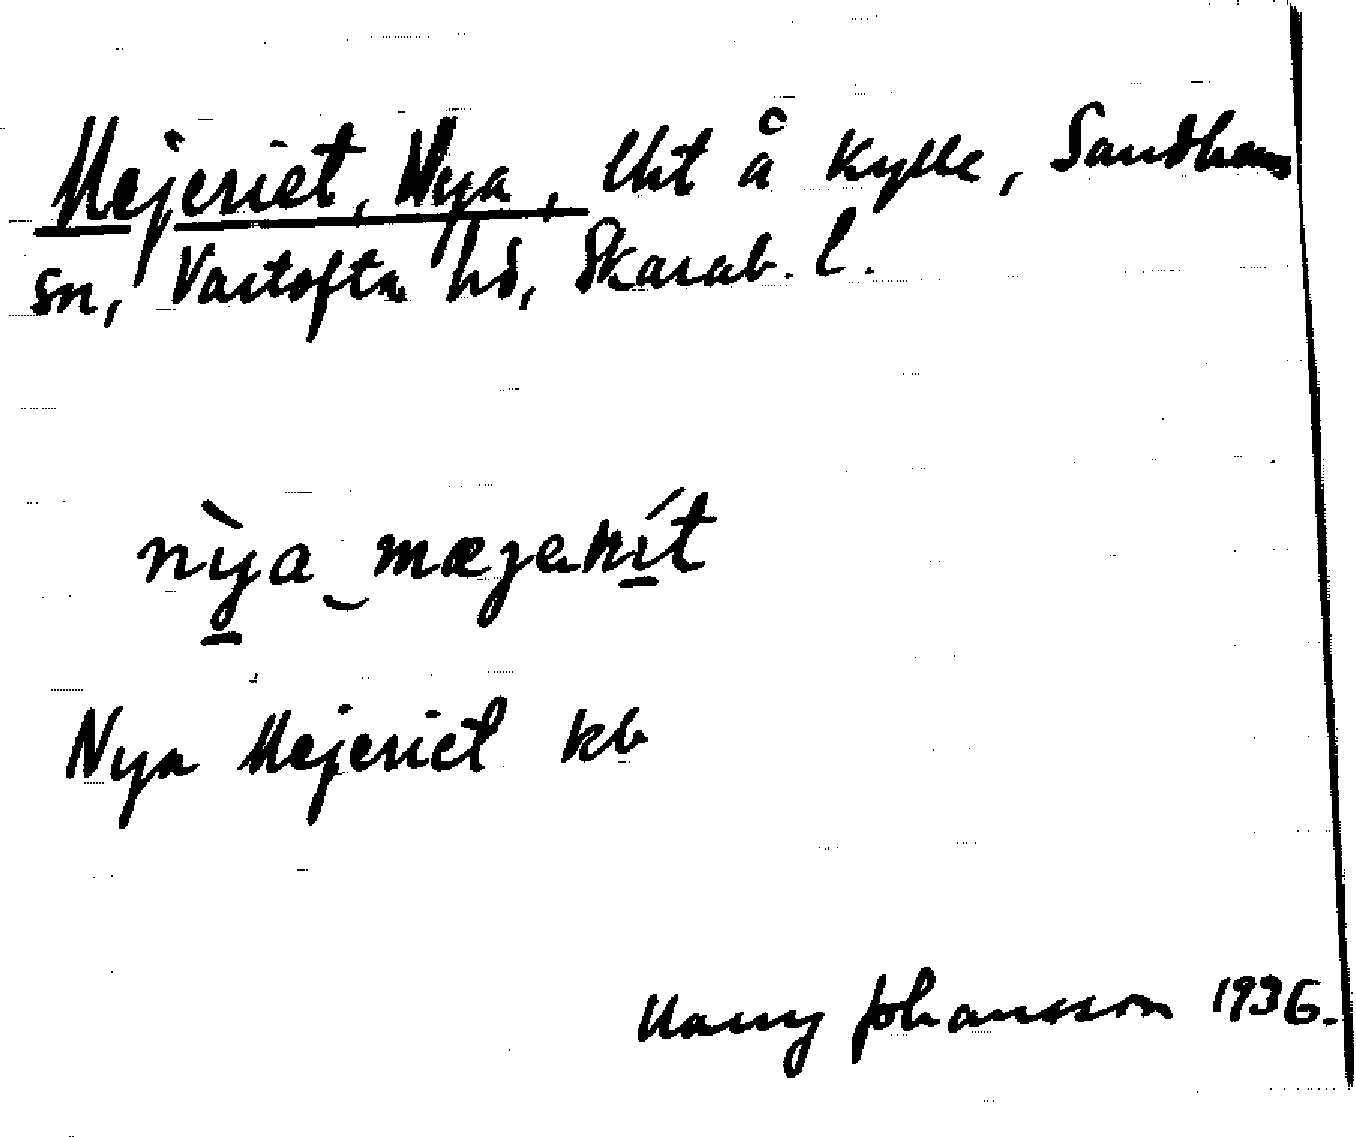 Mejeriet, Nya, lht å Kylle, Sandhems
sn, Vartofta hd, Skarab. l.
nỳa‿mæjerít
Nya Mejeriet kb
Harry Johansson 1936.